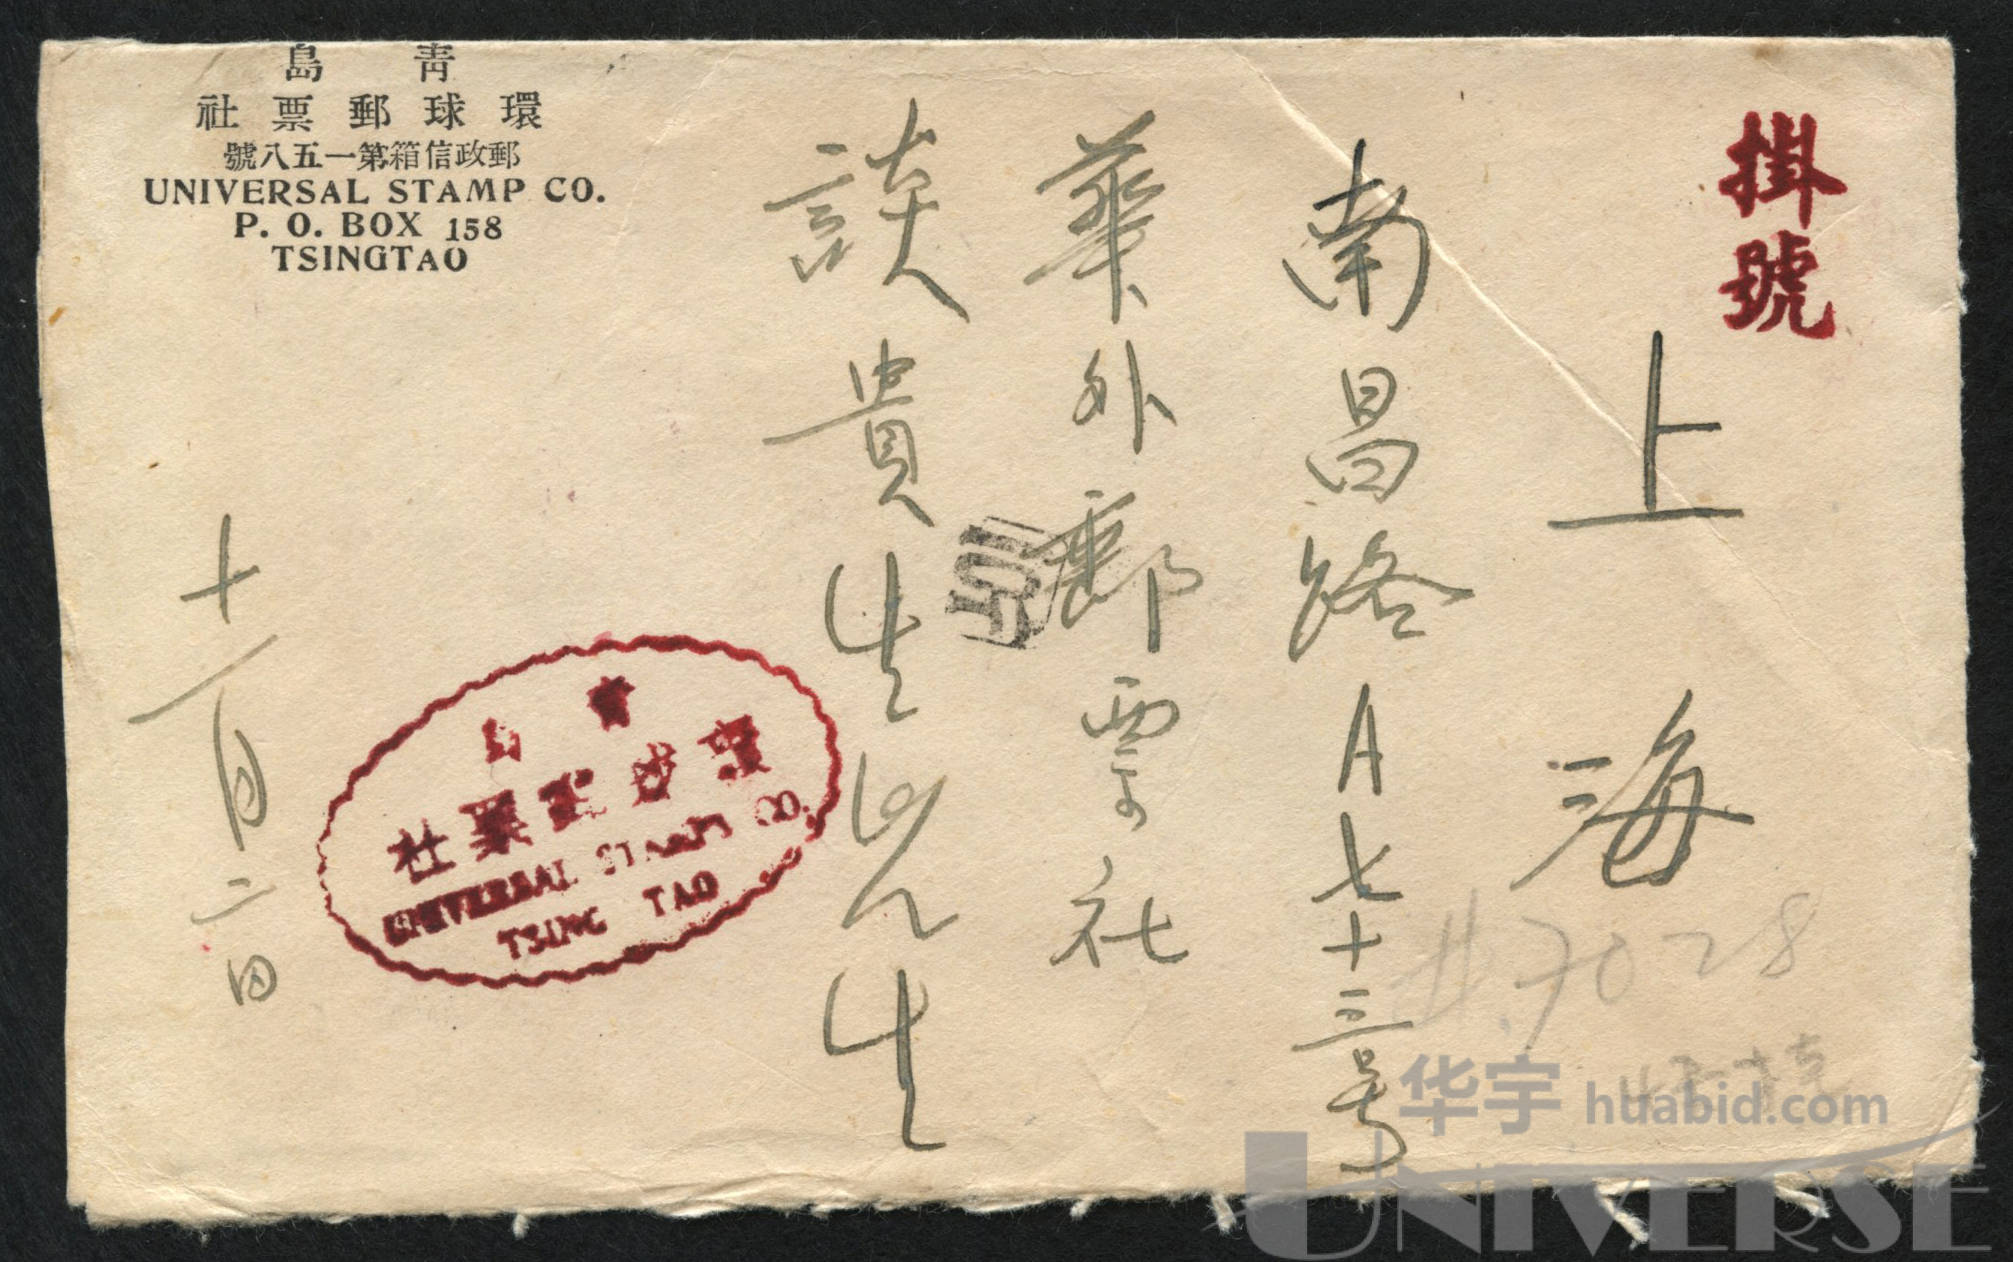 青島
環球郵票社
郵政信箱第一五八號
UNIVERSAL STAMP CO.
P. O. BOX 158
TSINGTAO
掛號
上海
南昌路A七十三号
華外郵票社
談貴生先生
十一月二日
青島
環球郵票社
UNIVERSAL STAMPS CO.
TSING TAO
7028
华宇 huabid.com
UNIVERSE